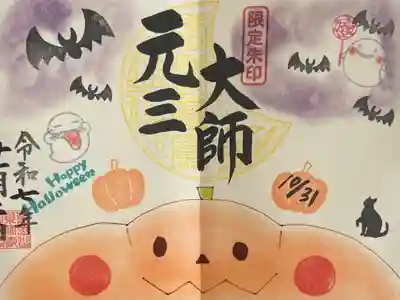 限定朱印
元三
大師
10/31
Happy
Halloween
令和七年